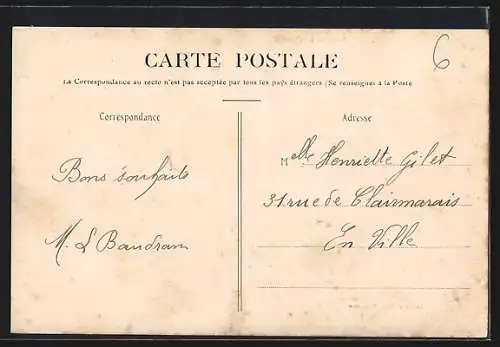 6
CARTE POSTALE
La Correspondance au recto n'est pas acceptée par tous les pays étrangers (Se renseigner à la Poste
Correspondance
Adresse
Mlle Henriette Gilet
Bons souhaits
31 rue de Clairmarais
M. L Baudran
En Ville